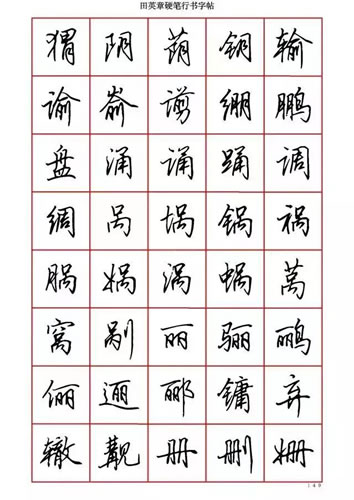 田英章硬笔行书字帖
猬 阴 荫 输
谕 嵛 谫 绷 鹏
盘 涌 诵 踊 调
绸 呙 埚 锅 祸
脶 娲 涡 蜗 莴
窝 剐 丽 骊 鹂
俪 逦 郦 镛 弃
辙 觏 册 删 姗
| 4 9